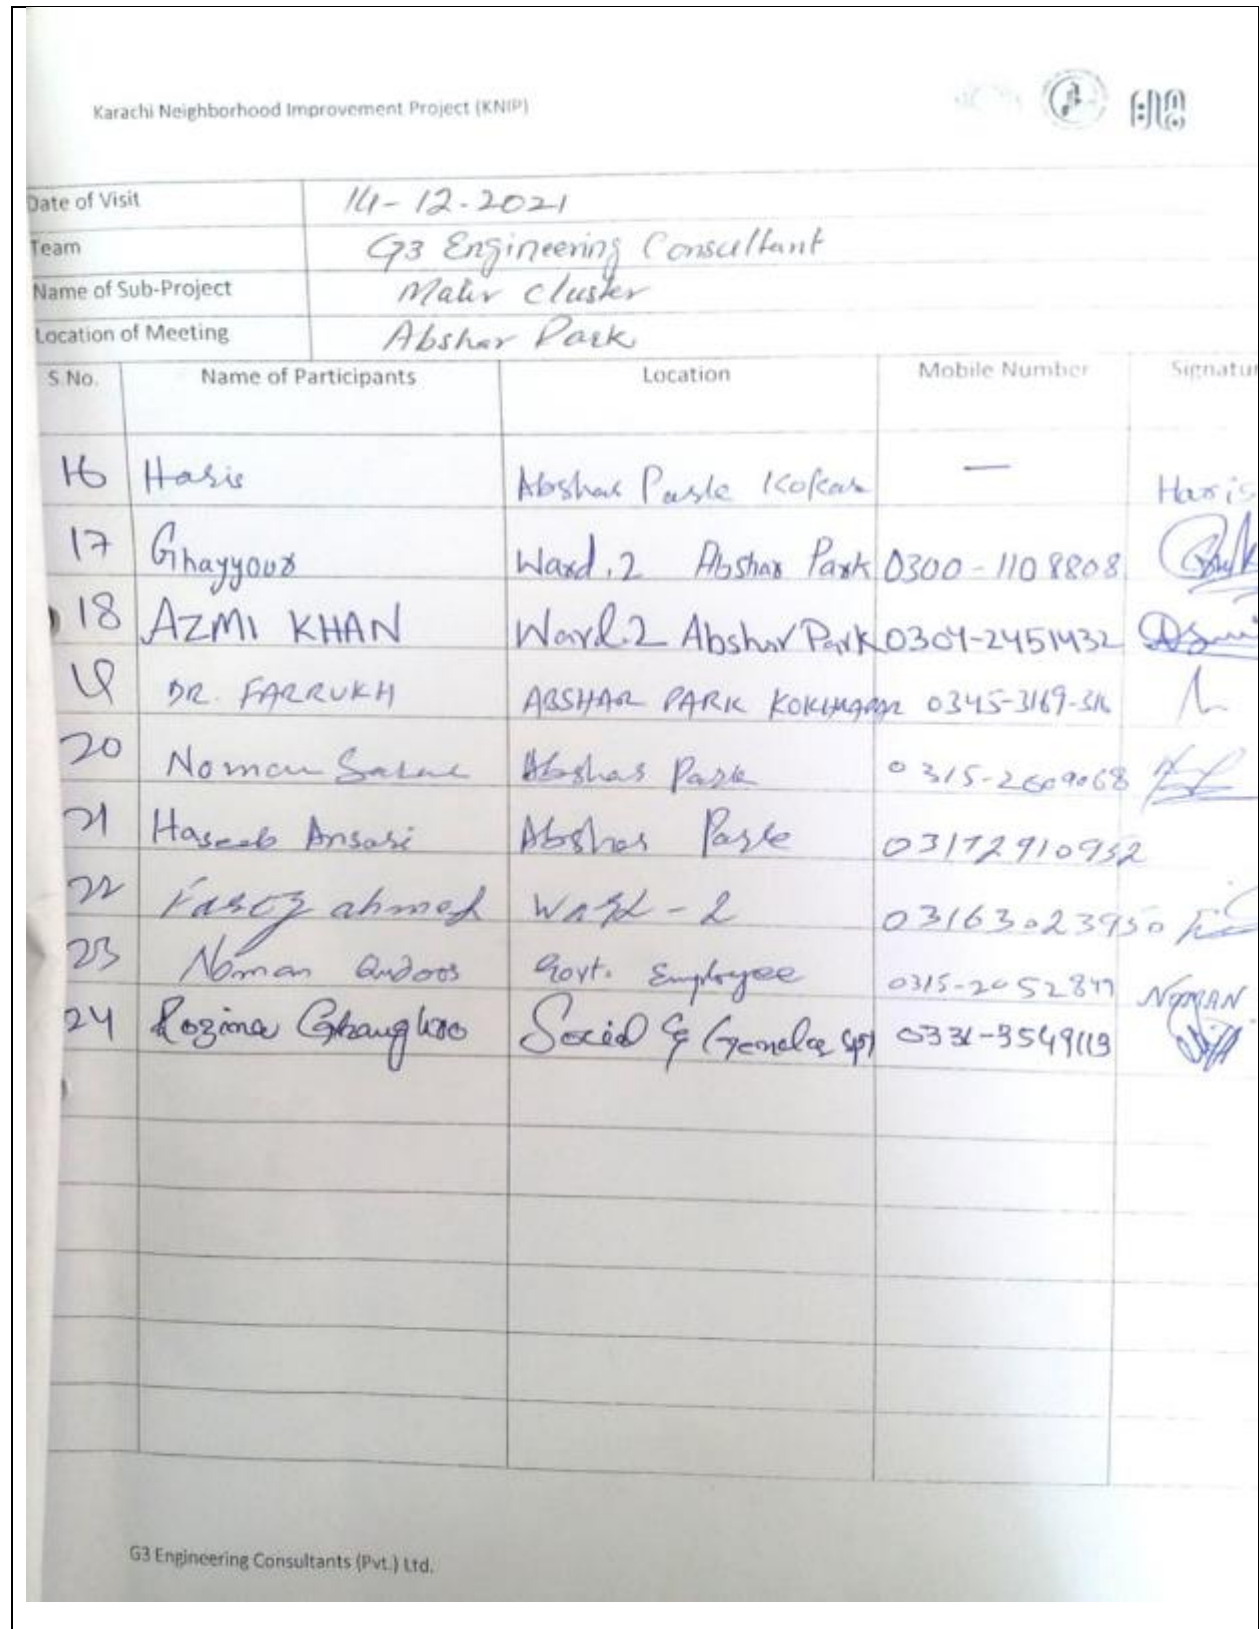 Karachi Neighborhood Improvement Project (KNIP)
Date of Visit 14-12-2021
Team G3 Engineering Consultant
Name of Sub-Project Malir Cluster
Location of Meeting Abshar Park
S.No. Name of Participants Location Mobile Number Signatur
16 Haris Abshar Park — Haris
17 Ghayyour Ward.2 Abshar Park 0300-1108808
18 AZMI KHAN Ward.2 Abshar Park 0304-2451432
19 DR. FARRUKH ABSHAR PARK 0345-3169-316
20 Noman Abshar Park 0315-2609068
21 Haseeb Ansari Abshar Park 03172910952
22 ahmed Ward-2 03163023950
23 Noman Qudoos Govt. Employee 0315-2052847 NOMAN
24 Rozina Social &
G3 Engineering Consultants (Pvt.) Ltd.